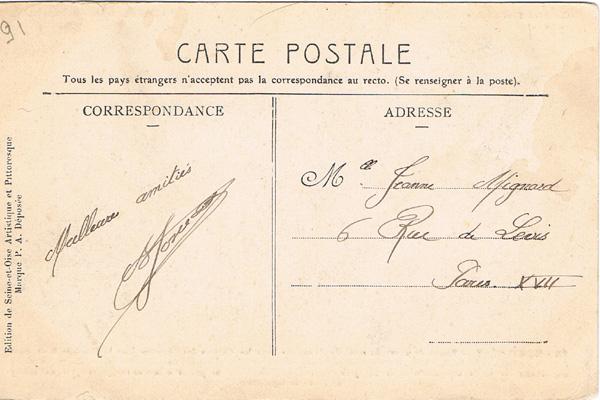 91
CARTE POSTALE
Tous les pays étrangers n'acceptent pas la correspondance au recto. (Se renseigner à la poste).
CORRESPONDANCE
Meilleures amitiés
ADRESSE
Mlle Jeanne Mignard
6 Rue de Levis
Paris XVII
Edition de Seine-et-Oise Artistique et Pittoresque
Marque P. A. Déposée